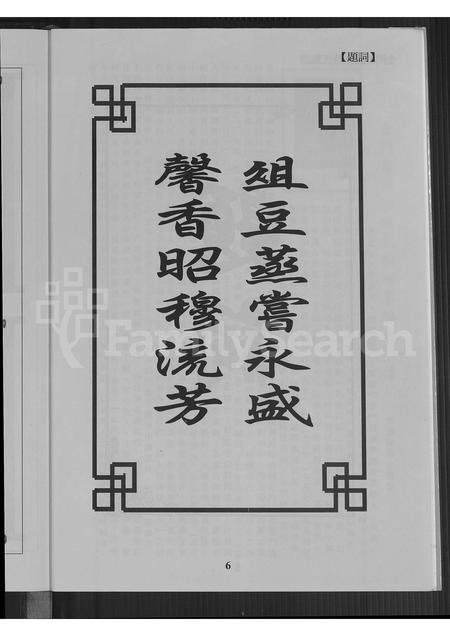 【題詞】
俎豆蒸嘗永盛
馨香昭穆流芳
FamilySearch
6